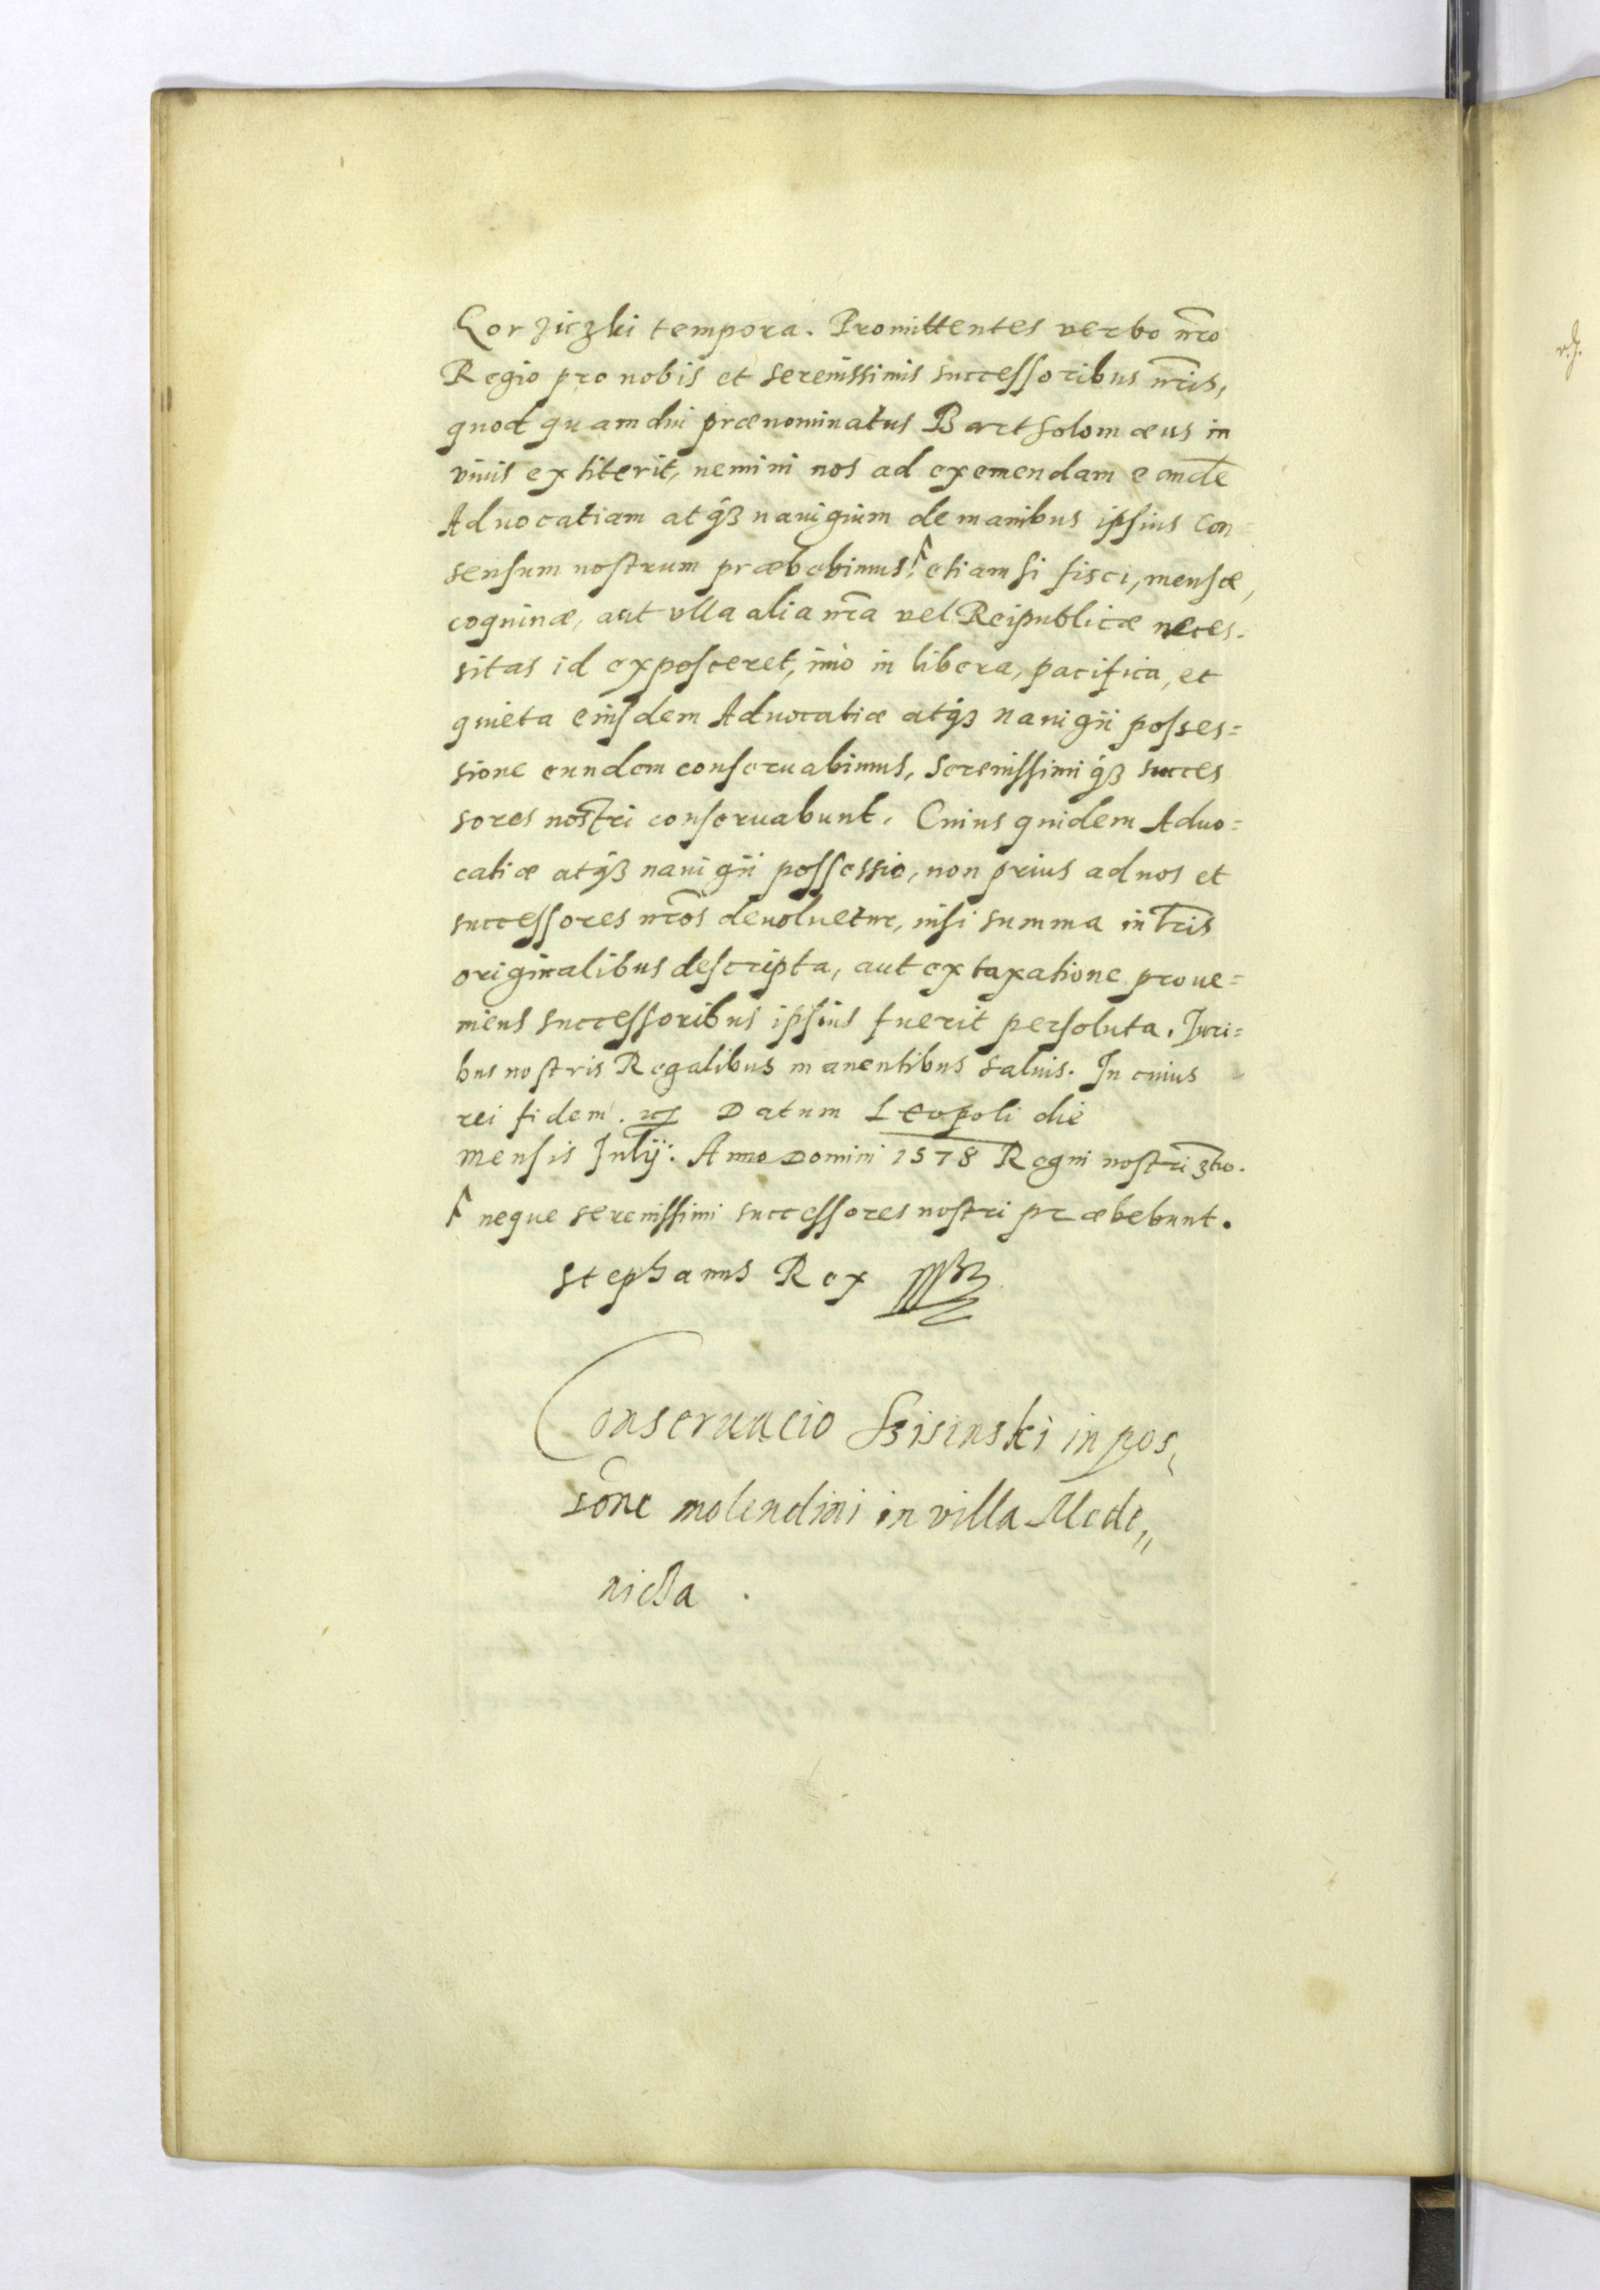 Gorziczki tempora. Promittentes verbo nr̃o
Regio pro nobis et serenissimis successoribus nr̃is,
quod quamdiu prænominatus Bartholomæus in
viuis extiterit, nemini nos ad exemendam eandẽ
Aduocatiam atqз nauigium de manibus ipsius Con-
sensum nostrum præbebimus, etiam si fisci, mensæ,
coquinæ, aut vlla alia nr̃a vel Reipublicæ neces-
sitas id exposceret, imò in libera, pacifica, et
quieta eiusdem Aduocatiæ atqз nauigii posses=
sione eundem conseruabimus, Serenissimiqз succes
sores nostri conseruabunt. Cuius quidem Aduo=
catiæ atqз nauigii possessio, non prius ad nos et
successores nr̃os deuoluetur, nisi summa in lr̃is
originalibus descripta, aut ex taxatione proue=
niens successoribus ipsius fuerit persoluta. Juri=
bus nostris Regalibus manentibus saluis. In cuius
rei fidem. Datum Leopoli die
mensis Julij. Anno Domini 1578 Regni nostri 3tio.
neque serenissimi successores nostri præbebunt.
Stephanus Rex
Conseruacio Szisinski in pos,
sone molendini in villa Mede,,
nicza.